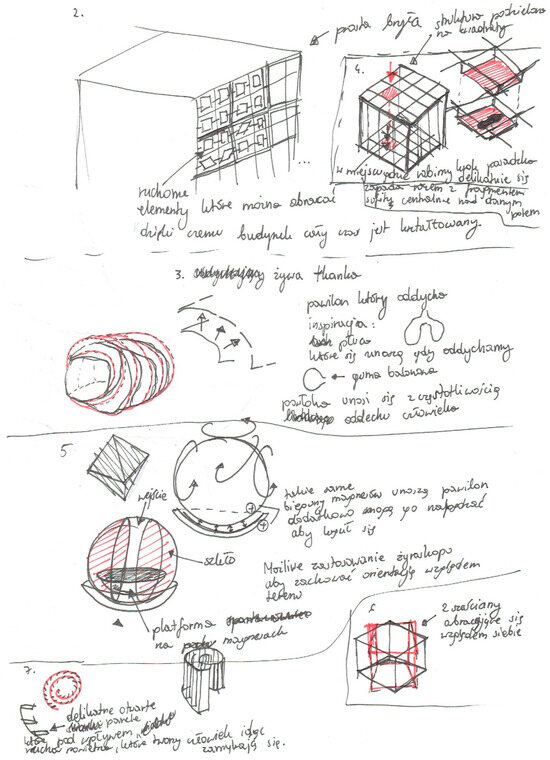 2.
prosta bryła
struktura podzielona
na kwadraty
4.
w miejscu gdzie robimy krok posadzka
delikatnie się
zapada razem z fragmentem
sufitu centralnie nad danym
polem
ruchome
elementy które można obracać
dzięki czemu budynek cały czas jest kształtowany
...
3. żywa tkanka
pawilon który oddycha
inspiracja:
płuca
które się unoszą gdy oddychamy
guma balonowa
powłoka unosi się z częstotliwością
oddechu człowieka
5
wejście
szkło
platforma
na magnesach
takie same
bieguny magnesów unoszą pawilon
dodatkowo mogą go napędzać
aby kręcił się
Możliwe zastosowanie żyroskopu
aby zachować orientację względem
terenu
6
2 sześciany
obracające się
względem siebie
7.
delikatne otwarte
panele
które pod wpływem
ruchu powietrza, które tworzy człowiek idąc
zamykają się.